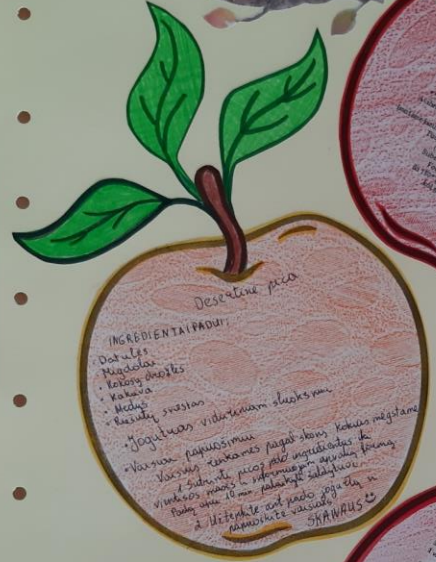 Desertinė pica
INGREDIENTAI PADUI:
• Datulės
• Migdolai
• Kokosų drožlės
• Kakava
• Medus
• Riešutų sviestas
• Jogurtas viduriniam sluoksniui
• Vaisiai papuošimui
Vaisius renkamės pagal skonį, kokius mėgstame
1. Sutrinti picos pado ingredientus iki
vientisos masės ir suformuojam apvalią formą.
Padą apie 10 min. palaikyti šaldytuve.
2. Užtepkite ant pado jogurtą ir
papuoškite vaisiais.
SKANAUS